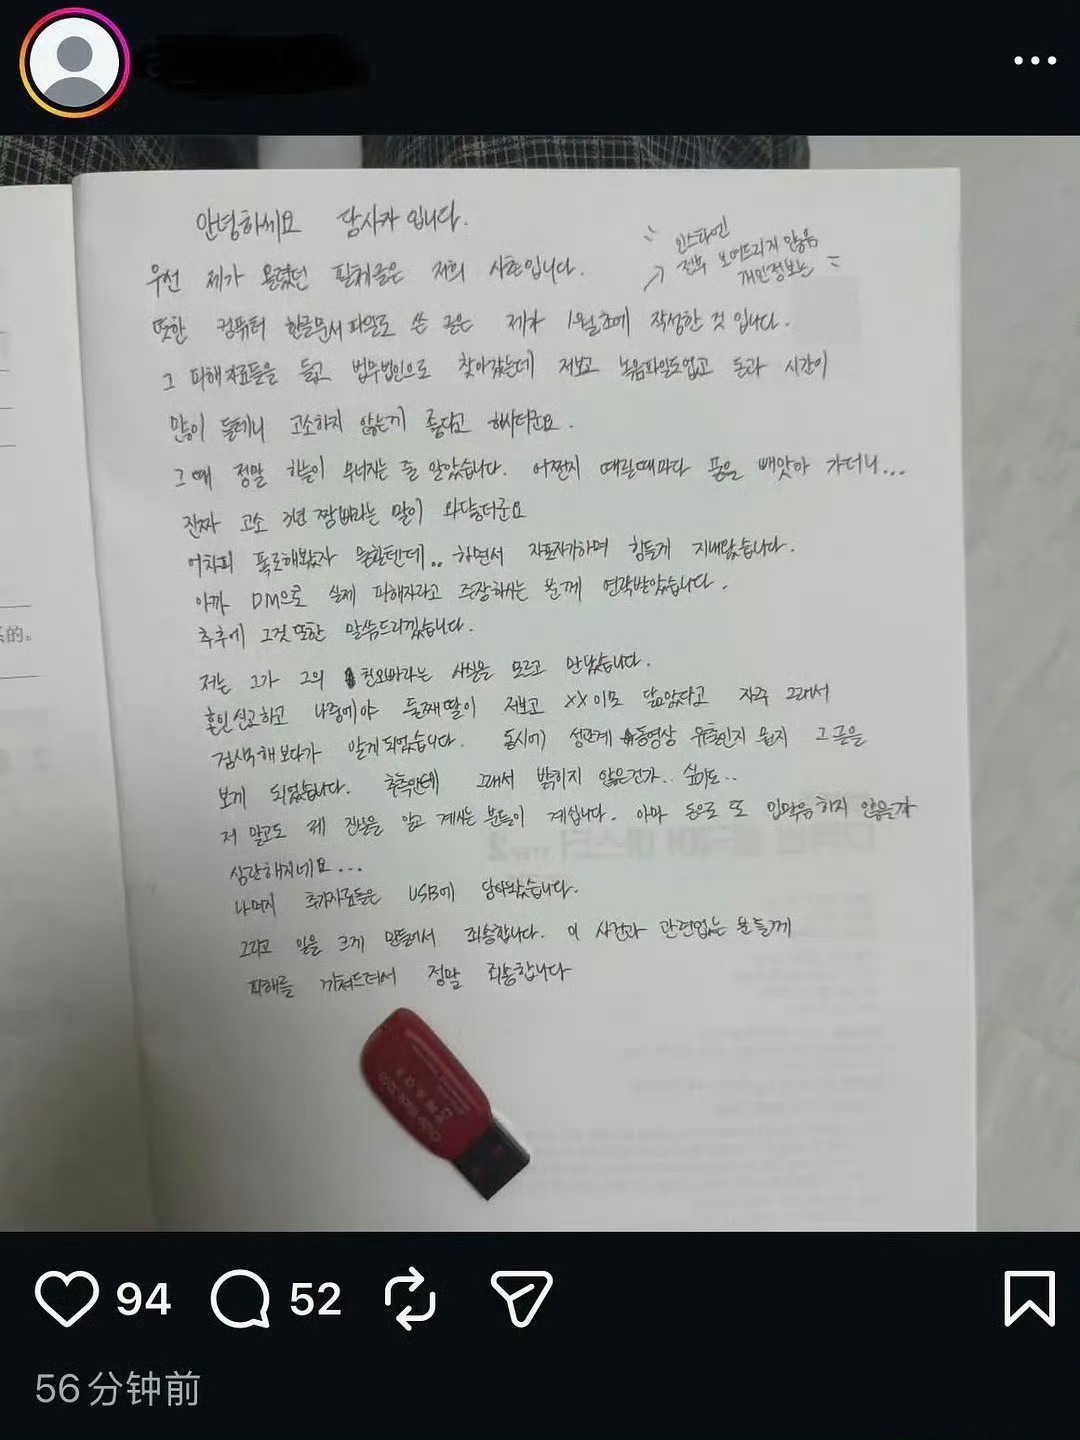 안녕하세요 당사자 입니다.
인스타엔
전부 보여드리지 않음
개인정보는
우선 제가 올렸던 필체글은 저희 사촌입니다.
또한 컴퓨터 한글문서 파일로 쓴 글은 제가 1월초에 작성한 것 입니다.
그 피해자료들을 들고 법무법인으로 찾아갔는데 저보고 녹음파일도없고 돈과 시간이
많이 들테니 고소하지 않는게 좋다고 하시더군요.
그때 정말 하늘이 무너지는 줄 알았습니다. 어쩐지 때릴때마다 폰을 빼앗아 가더니...
진짜 고소 3년 짬빠라는 말이 와닿더군요
어차피 폭로해봤자 못할텐데.. 하면서 자포자기하며 힘들게 지내왔습니다.
아까 DM으로 실제 피해자라고 주장하시는 분께 연락받았습니다.
추후에 그것 또한 말씀드리겠습니다.
저는 그가 그의 친오빠라는 사실을 모르고 만났습니다.
혼인신고하고 나중에야 둘째딸이 저보고 XX이모 닮았다고 자주 그래서
검색해 보다가 알게되었습니다. 동시에 성관계 동영상 유출인지 뭔지 그 글을
보게 되었습니다. 추측인데 그래서 밝히지 않은건가.. 싶기도..
저 말고도 제 진실을 알고 계시는 분들이 계십니다. 아마 돈으로 또 입막음 하지 않을까
심란해지네요...
나머지 추가자료들은 USB에 담아왔습니다.
그리고 일을 크게 만들어서 죄송합니다. 이 사건과 관련없는 분들께
피해를 끼쳐드려서 정말 죄송합니다
的。
94
52
56分钟前